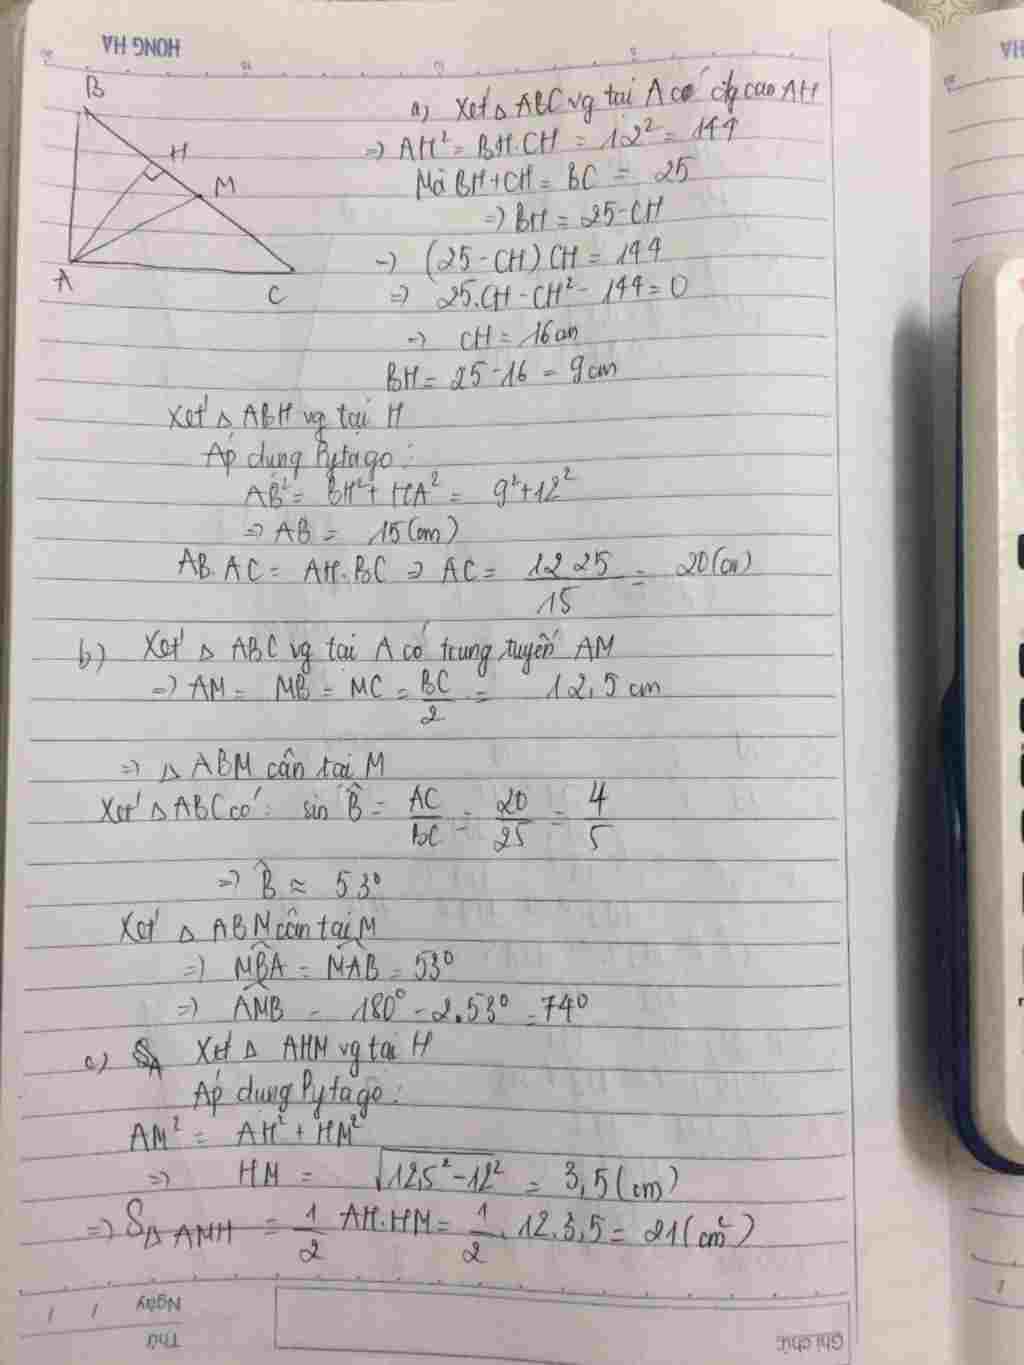 HONG HA
B
H
M
A
C
a) Xét Δ ABC vg tại A có đg cao AH
=) AH² = BH.CH = 12² = 144
Mà BH+CH = BC = 25
=) BH = 25-CH
=) (25-CH) CH = 144
=) 25.CH - CH² - 144 = 0
=) CH = 16cm
BH = 25-16 = 9cm
Xét Δ ABH vg tại H
Áp dụng Pytago:
AB² = BH² + HA² = 9²+12²
=) AB = 15(cm)
AB.AC = AH.BC => AC = 12.25/15 = 20(cm)
b) Xét Δ ABC vg tại A có trung tuyến AM
=) AM = MB = MC = BC/2 = 12,5 cm
=) Δ ABM cân tại M
Xét Δ ABC có: sin B̂ = AC/BC = 20/25 = 4/5
=) B̂ ≈ 53°
Xét Δ ABM cân tại M
=) MBA = MAB = 53°
=) AMB = 180° - 2.53° = 74°
c) Xét Δ AHM vg tại H
Áp dụng Pytago:
AM² = AH² + HM²
=) HM = √12,5² - 12² = 3,5 (cm)
=) SΔAMH = 1/2 AH.HM = 1/2 . 12.3,5 = 21(cm²)
Ngày / /
Thứ
Ghi chú: